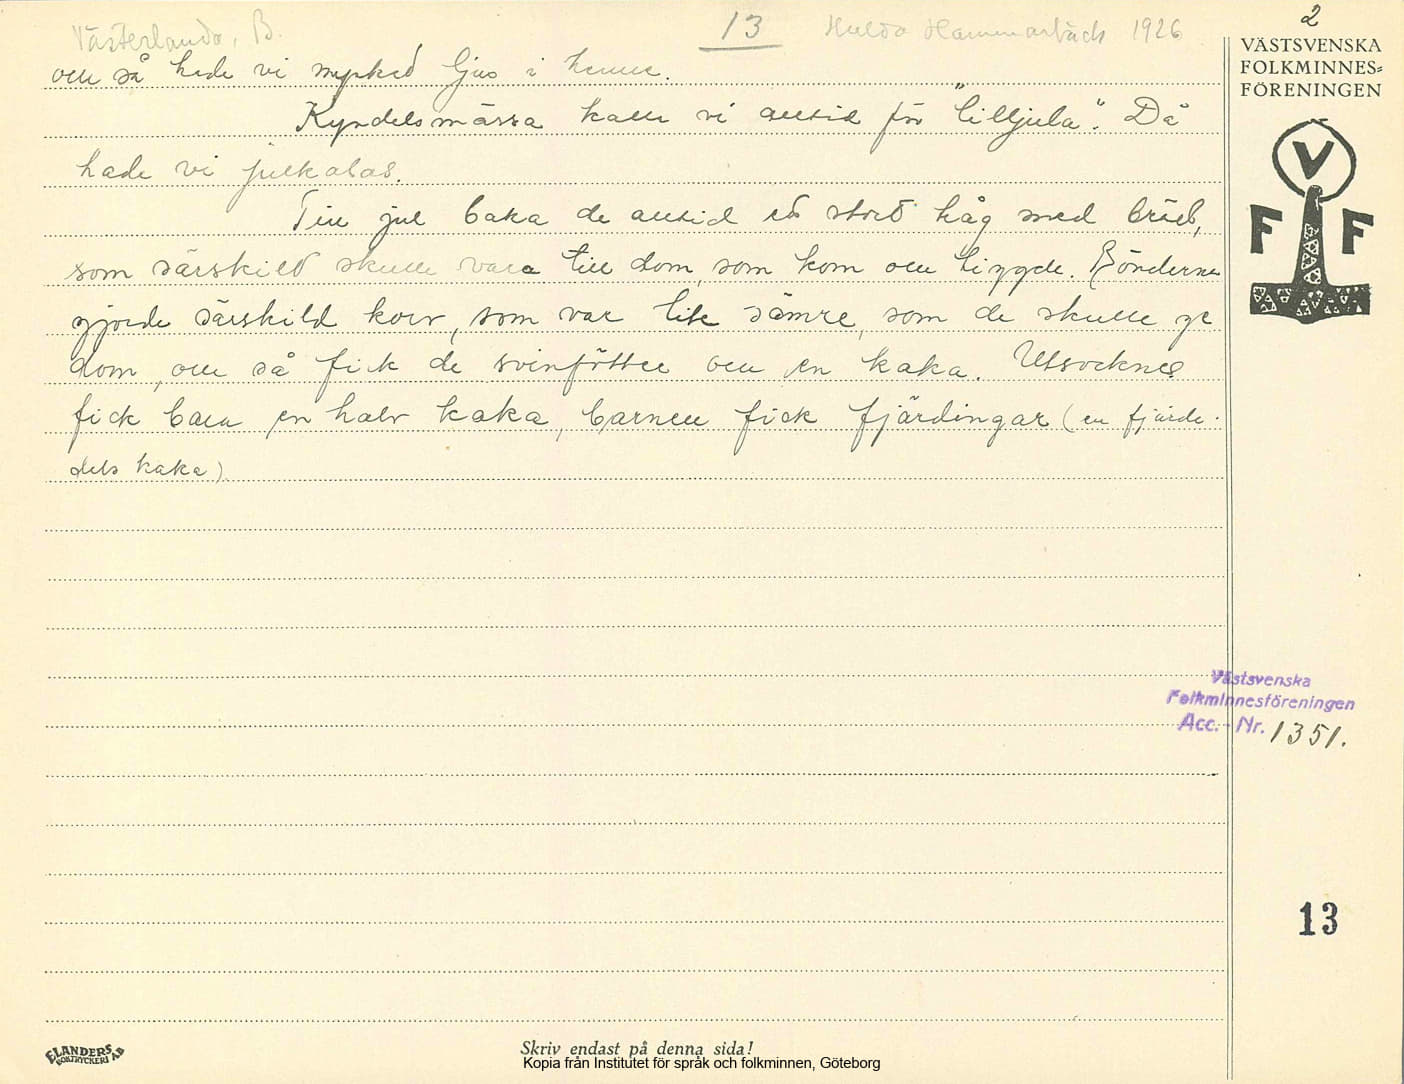 Västerlanda, B. 13 Hulda Hammarbäck 1926 2
VÄSTSVENSKA
FOLKMINNES=
FÖRENINGEN
och så hade vi mycked ljus i
Kyndelsmässa kalla vi alltid för "lilljula". Då
hade vi julkalas.
Till jul baka de alltid ed stord håg med bröd,
som särskild skulle vara till dom, som kom och tiggde. Bönderna
gjorde särskild korv, som var lite sämre, som de skulle ge
dom, och så fick de svinfötter och en kaka. Utsocknes
fick bara en halv kaka, barnen fick fjärdingar (en fjärde-
dels kaka).
V
F F
Västsvenska
Folkminnesföreningen
Acc. - Nr. 1351.
13
ELANDERS
BOKTRYCKERI AB
Skriv endast på denna sida!
Kopia från Institutet för språk och folkminnen, Göteborg